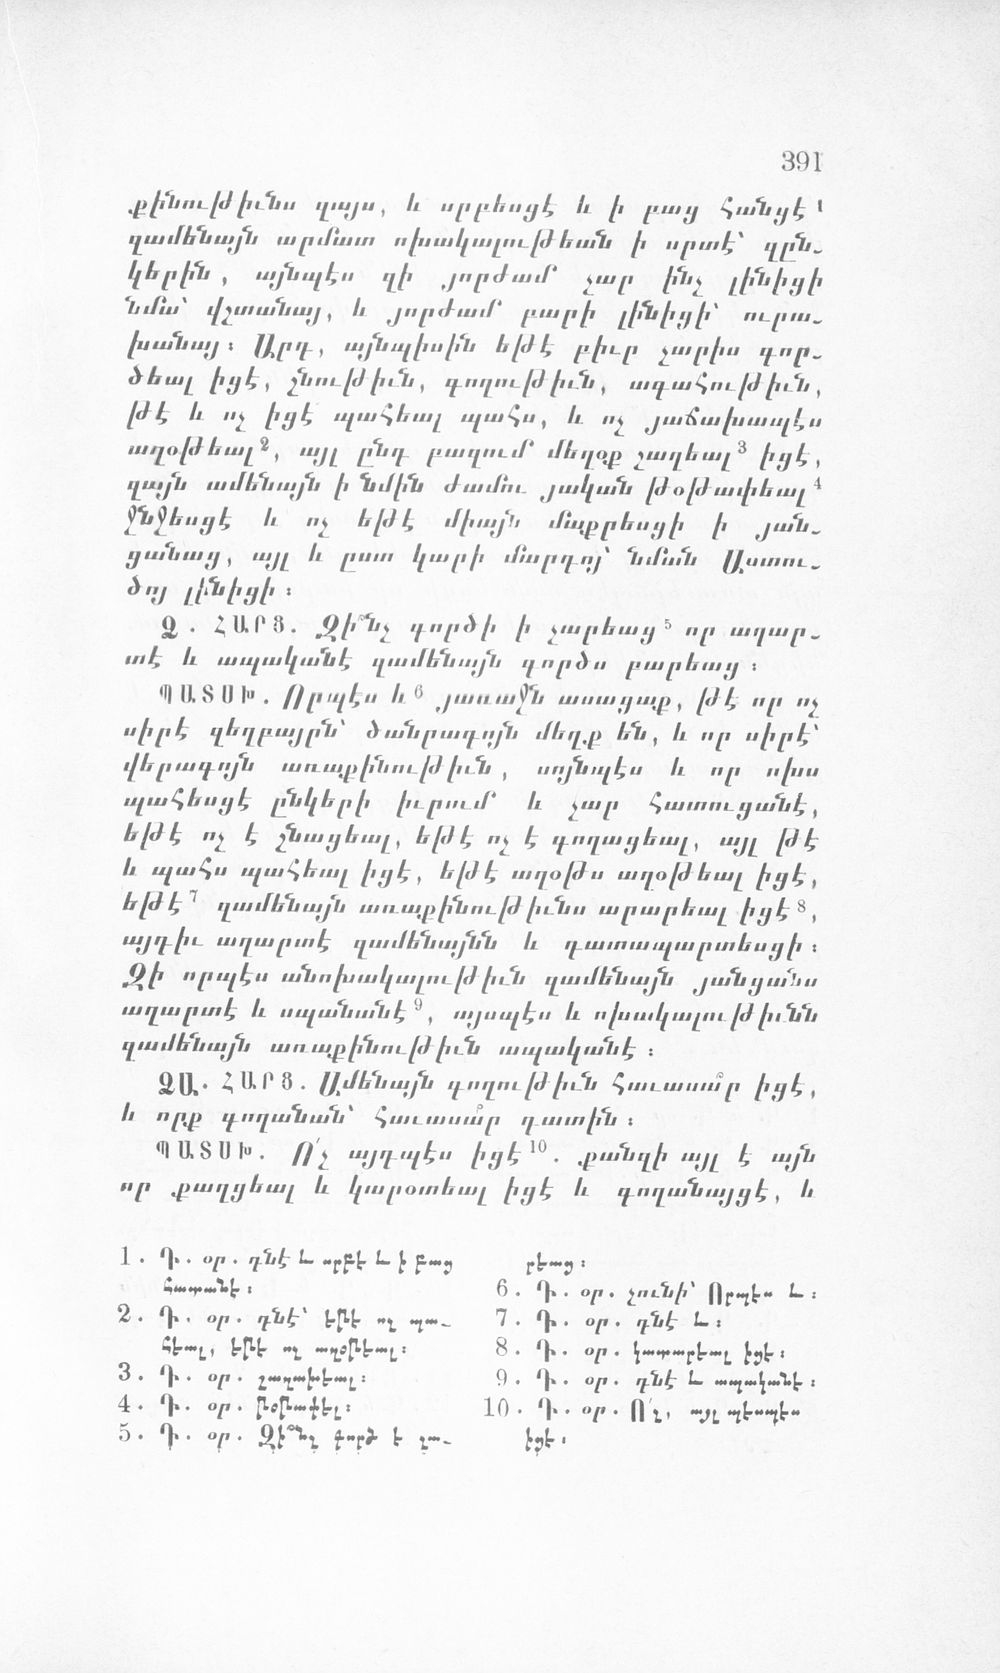 391
քինութիւնս զայս, և սրբեսցէ և ի բաց հանցէ¹
զամենայն արմատ ոխակալութեան ի սրտէ՝ զըն-
կերին, այնպէս զի յորժամ չար ինչ լինիցի
նմա՝ վշտանայ, և յորժամ բարի լինիցի՝ ուրա-
խանայ։ Արդ, այնպիսին եթէ բիւր չարիս գոր-
ծեալ իցէ, շնութիւն, գողութիւն, ագահութիւն,
թէ և ոչ իցէ պահեալ պահս, և ոչ յաճախապէս
աղօթեալ², այլ ընդ բազում մեղօք շաղեալ³ իցէ,
զայն ամենայն ի նմին ժամու յական թօթափեալ⁴
ջնջեսցէ և ոչ եթէ միայն մաքրեսցի ի յան-
ցանաց, այլ և ըստ կարի մարդոյ՝ նման Աստու-
ծոյ լինիցի։
Զ. ՀԱՐՑ. Զի՞նչ գործի ի չարեաց⁵ որ աղար-
տէ և ապականէ զամենայն գործս բարեաց։
ՊԱՏՍԽ. Որպէս և⁶ յառաջն ասացաք, թէ որ ոչ
սիրէ զեղբայրն՝ ծանրագոյն մեղք են, և որ սիրէ՝
վերագոյն առաքինութիւն, սոյնպէս և որ ոխս
պահեսցէ ընկերի իւրում և չար հատուցանէ,
եթէ ոչ է շնացեալ, եթէ ոչ է գողացեալ, այլ թէ
և պահս պահեալ իցէ, եթէ աղօթս աղօթեալ իցէ,
եթէ⁷ զամենայն առաքինութիւնս արարեալ իցէ⁸,
այդիւ աղարտէ զամենայնն և դատապարտեսցի։
Զի որպէս անոխակալութիւն զամենայն յանցանս
աղարտէ և սպանանէ⁹, այսպէս և ոխակալութիւնն
զամենայն առաքինութիւն ապականէ։
ԶԱ. ՀԱՐՑ. Ամենայն գողութիւն հաւասա՞ր իցէ,
և որք գողանան՝ հաւասա՞ր դատին։
ՊԱՏՍԽ. Ո՛չ այդպէս իցէ¹⁰. քանզի այլ է այն
որ քաղցեալ և կարօտեալ իցէ և գողանայցէ, և
1. Դ. օր. դնէ և սրբէ և ի բաց
հատանէ։
2. Դ. օր. դնէ՝ եթէ ոչ պա-
հեալ, եթէ ոչ աղօթեալ։
3. Դ. օր. շաղախեալ։
4. Դ. օր. թօթափել։
5. Դ. օր. Զի՞նչ գործ է չա-
րեաց։
6. Դ. օր. չունի՝ Որպէս և։
7. Դ. օր. դնէ և։
8. Դ. օր. կատարեալ իցէ։
9. Դ. օր. դնէ և ապականէ։
10. Դ. օր. Ո՛չ, այլ պէսպէս
իցէ։